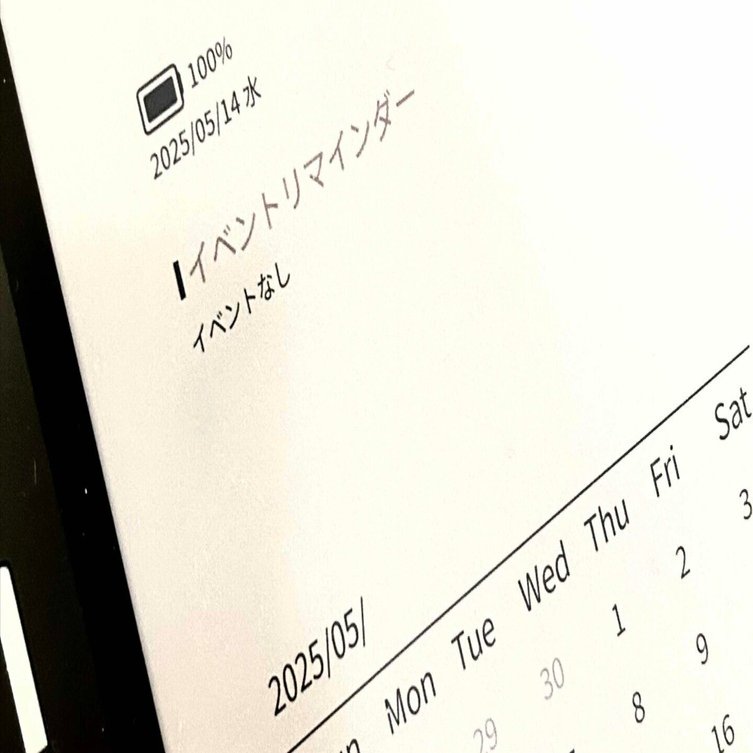 100%
2025/05/14 水
イベントリマインダー
イベントなし
2025/05/
Mon Tue Wed Thu Fri Sat
29 30 1 2 3
8 9
16